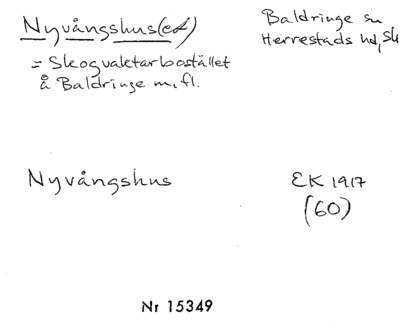 Nyvångshus(et)
Baldringe sn
Herrestads hd, Sk
= Skogvaktarbostället
å Baldringe m. fl.
Nyvångshus
EK 1917
(60)
Nr 15349